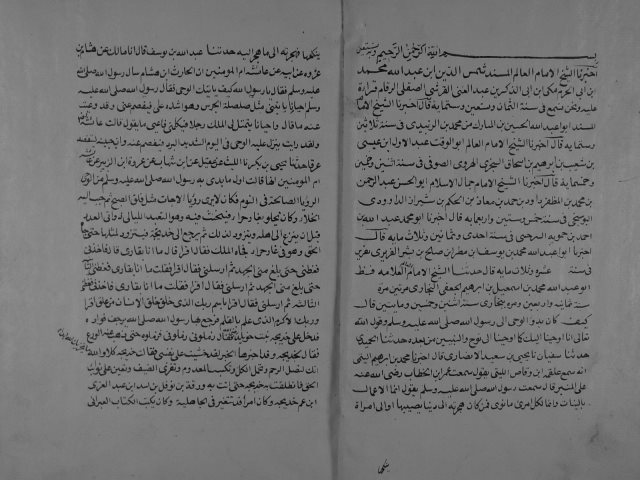 بسم الله الرحمن الرحيم وبه نستعين
اخبرنا الشيخ الامام العالم المسند شمس الدين ابو عبد الله محمد
ابن ابي الحرم مكي بن ابي الذكر بن عبد الغني القرشي الصقلي الرقام قراءة
عليه ونحن نسمع في سنة الثمان وتسعين وستمايه قال اخبرنا الشيخ الامام
المسند ابو عبد الله الحسين بن المبارك بن محمد بن الزبيدي في سنة ثلاثين
وستمايه قال اخبرنا الشيخ الامام ابو الوقت عبد الاول بن عيسى
بن شعيب بن ابراهيم بن اسحاق السجزي الهروي الصوفي في سنة اثنين وخمسين
وخمسمايه قال اخبرنا الشيخ الامام جمال الاسلام ابو الحسن عبد الرحمن
بن محمد بن المظفر بن داود بن احمد بن معاذ بن الحكم بن شيرزاد الداودي
البوشنجي في سنة خمس وستين واربعمايه قال اخبرنا ابو محمد عبد الله بن
احمد بن حمويه السرخسي في سنة احدى وثمانين وثلاث مايه قال
اخبرنا ابو عبد الله محمد بن يوسف بن مطر بن صالح بن بشر الفربري بفربر
في سنة عشرة وثلاث مايه قال حدثنا الشيخ الامام العلامه
ابو عبد الله محمد بن اسمعيل بن ابراهيم الجعفي البخاري مرتين مرة
سنة ثمان واربعين ومره ببخارى سنة اثنين وخمسين ومايتين قال
كيف كان بدو الوحي الى رسول الله صلى الله عليه وسلم وقول الله
تعالى انا اوحينا اليك كما اوحينا الى نوح والنبيين من بعده حدثنا الحميدي
حدثنا سفيان نا يحيى بن سعيد الانصاري قال اخبرنا محمد بن ابراهيم التيمي
انه سمع علقمه ابن وقاص الليثي يقول سمعت عمر بن الخطاب رضي الله عنه
على المنبر قال سمعت رسول الله صلى الله عليه وسلم يقول انما الاعمال
بالنيات وانما لكل امرئ ما نوى فمن كان هجرته الى دنيا يصيبها او الى امراة
ينكحها
ينكحها فهجرته الى ما هاجر اليه حدثنا عبد الله بن يوسف قال انا مالك عن هشام بن
عروه عن ابيه عن عائشه ام المومنين ان الحارث ابن هشام سال رسول الله صلى الله
عليه وسلم فقال يا رسول الله كيف ياتيك الوحي فقال رسول الله صلى الله عليه
وسلم احيانا ياتيني مثل صلصلة الجرس وهو اشده علي فيفصم عني وقد وعيت
عنه ما قال واحيانا يتمثل لي الملك رجلا فيكلمني فاعي ما يقول قالت عائشه
ولقد رايته ينزل عليه الوحي في اليوم الشديد البرد فيفصم عنه وان جبينه ليتفصد
عرقا حدثنا يحيى بن بكير نا الليث عن عقيل عن ابن شهاب عن عروة ابن الزبير عن عائشه
ام المومنين انها قالت اول ما بدئ به رسول الله صلى الله عليه وسلم من الوحي
الرويا الصالحة في النوم فكان لا يرى رويا الا جاءت مثل فلق الصبح ثم حبب اليه
الخلاء وكان يخلو بغار حراء فيتحنث فيه وهو التعبد الليالي ذوات العدد
قبل ان ينزع الى اهله ويتزود لذلك ثم يرجع الى خديجه فيتزود لمثلها حتى جاءه
الحق وهو في غار حراء فجاءه الملك فقال اقرا قال ما انا بقارئ قال فاخذني
فغطني حتى بلغ مني الجهد ثم ارسلني فقال اقرا فقلت ما انا بقارئ فاخذني فغطني الثانية
حتى بلغ مني الجهد ثم ارسلني فقال اقرا فقلت ما انا بقارئ فاخذني فغطني
الثالثة ثم ارسلني فقال اقرا باسم ربك الذي خلق خلق الانسان من علق اقرا
وربك الاكرم الذي علم بالقلم فرجع بها رسول الله صلى الله عليه وسلم يرجف فواده
فدخل على خديجه بنت خويلد فقال زملوني زملوني فزملوه حتى ذهب عنه الروع
فقال لخديجه واخبرها الخبر لقد خشيت على نفسي فقالت خديجه كلا والله
انك لتصل الرحم وتحمل الكل وتكسب المعدوم وتقري الضيف وتعين على نوائب
الحق فانطلقت به خديجه حتى اتت به ورقة بن نوفل بن اسد بن عبد العزى
ابن عم خديجه وكان امرأ قد تنصر في الجاهلية وكان يكتب الكتاب العبراني